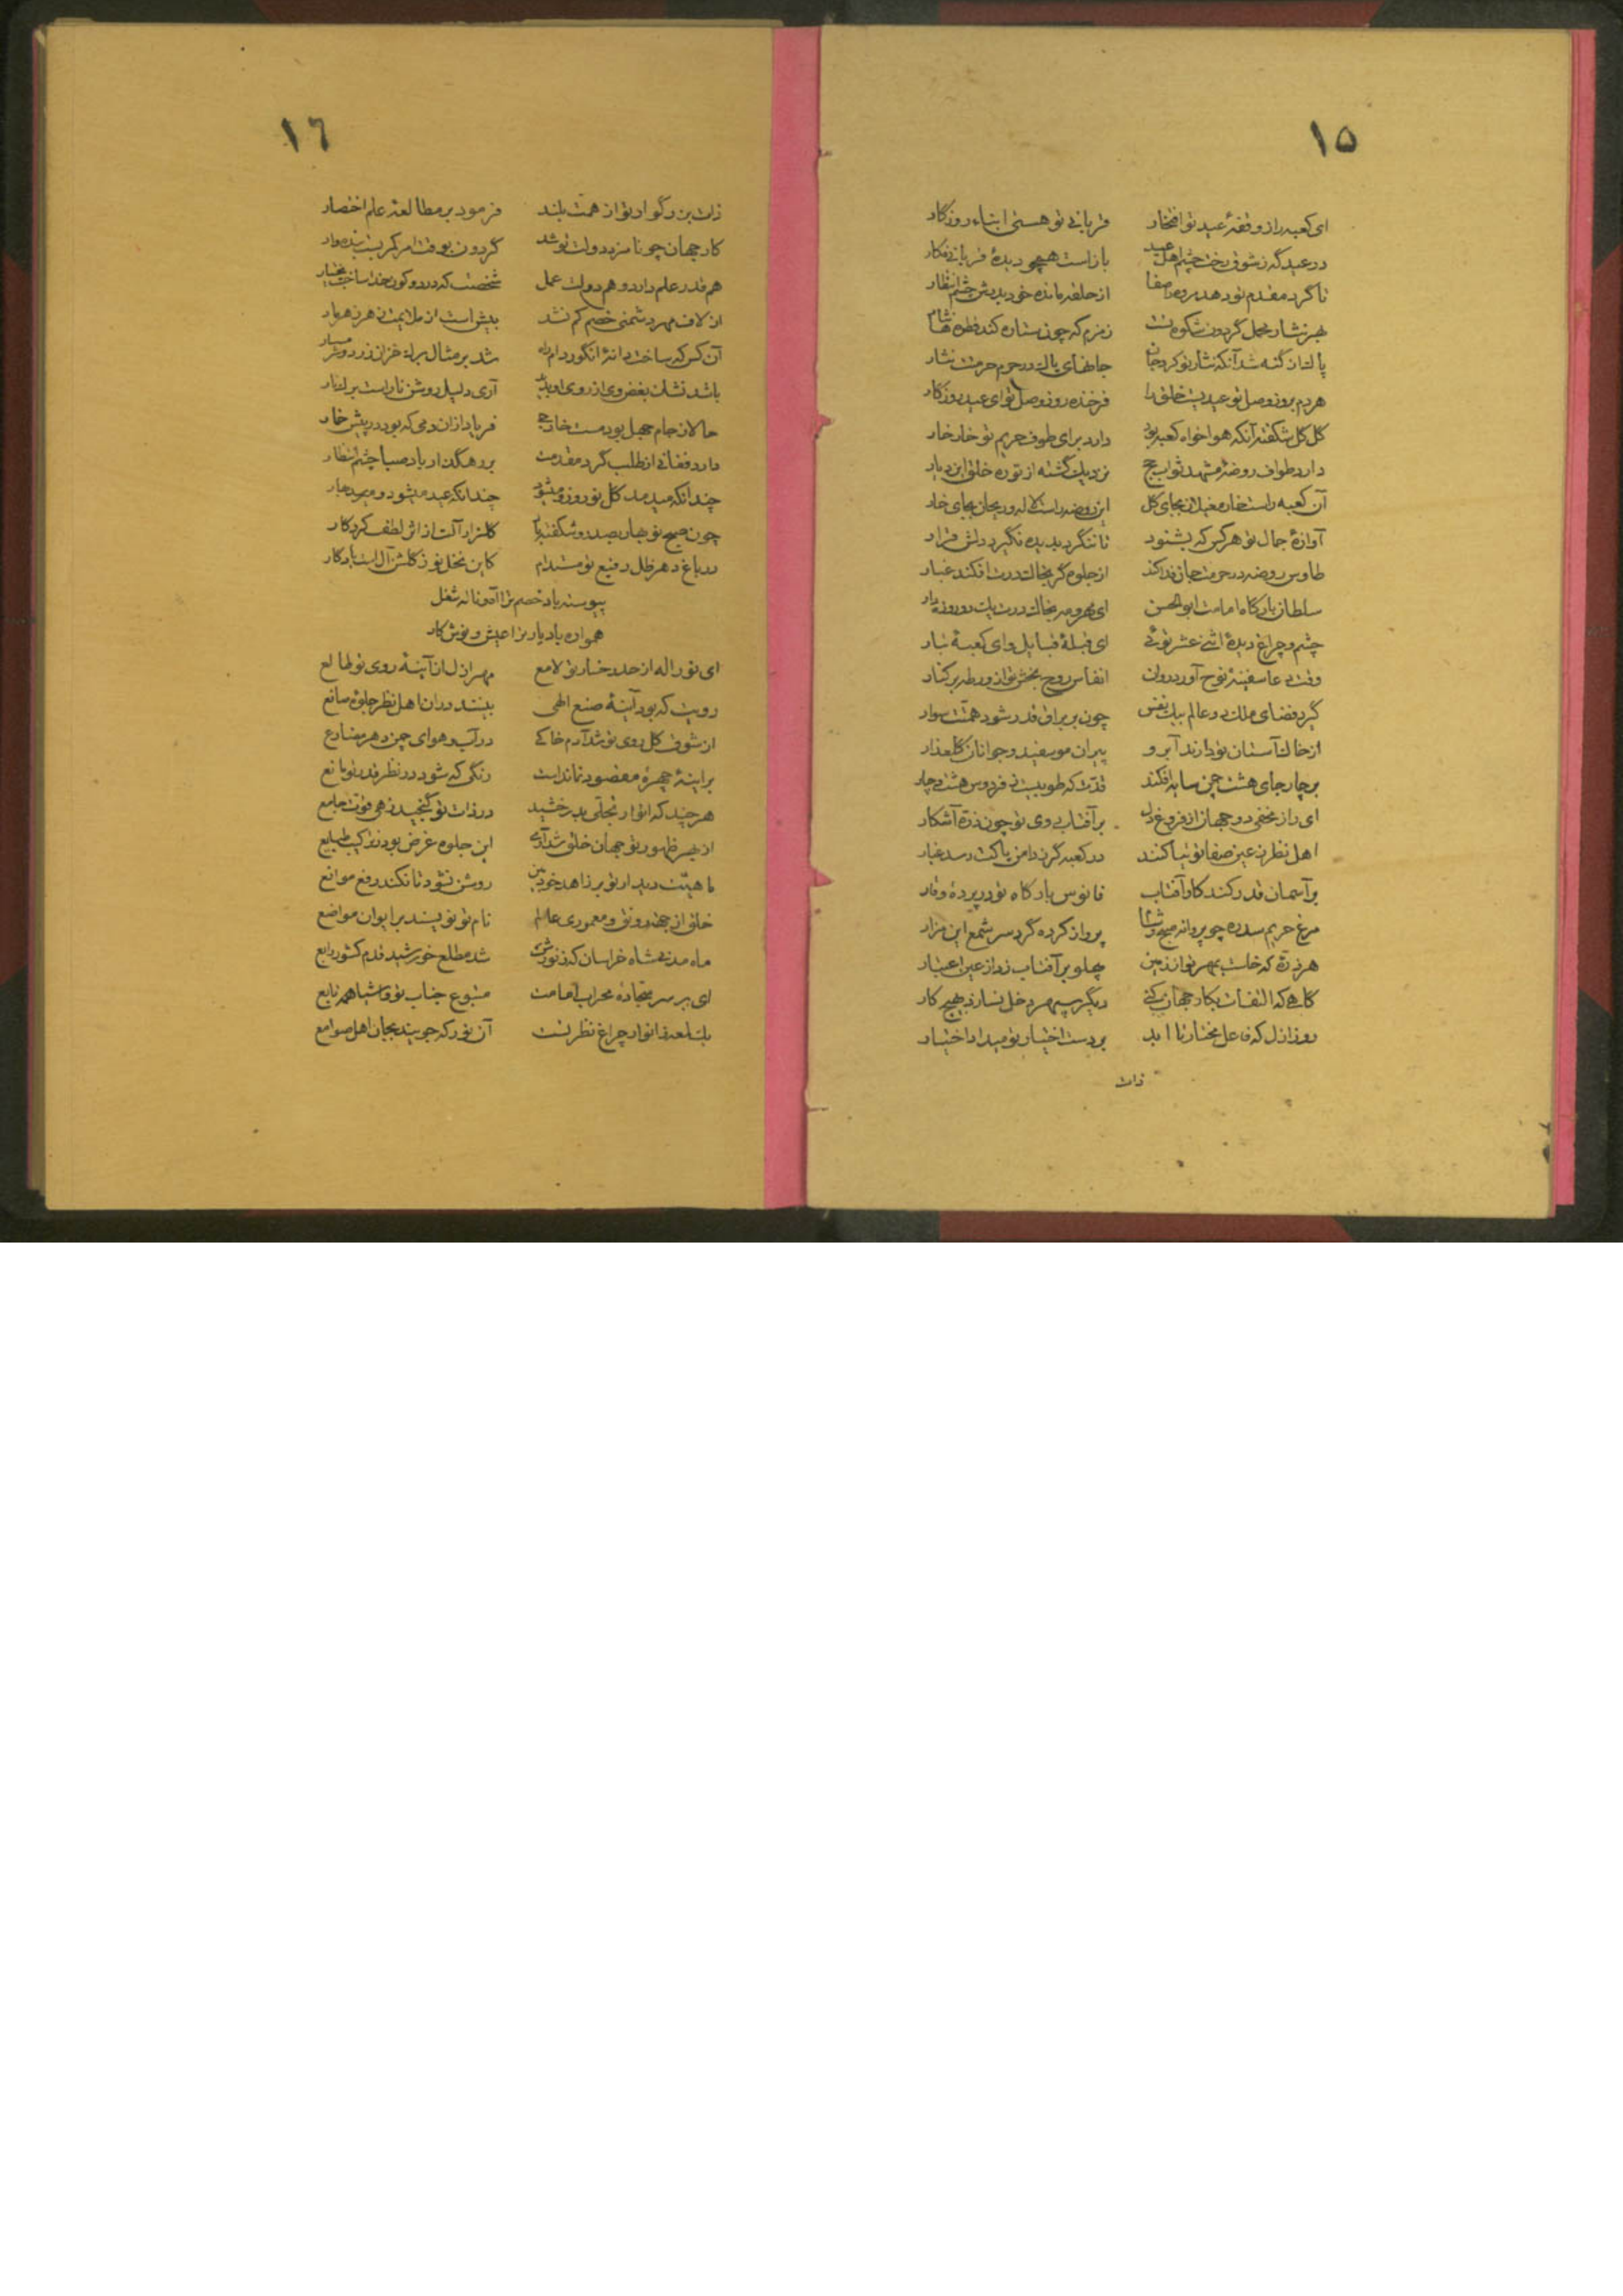 ۱۵
ای کعبه را ز وقفهٔ عید تو افتخار قربانی تو هستی ابناء روزگار
در عیدگه ز شوق رخت چشم اهل عید بازاست همچو دیدهٔ قربانی فکار
تا گرد مقدم تو دهد مروه را صفا از حلقه مانده خود بدرش چشم انتظار
بهر نثار محمل گردون شکوه تست زمزم که چون ستاره کند قطره‌ها نثار
پاک از گنه شد آنکه نثار تو کرد جان جانهای پاک در حرم حرمتت نثار
هر دم بروز وصل تو عیدیست خلق را فرخنده روز وصل تو ای عید روزگار
گل گل شکفته آنکه هواخواه کعبه بود دارد برای طوف حریم تو خار خار
دارد طواف روضهٔ مشهد ثواب حج نزدیک گشته از تو ره خلق این دیار
آن کعبه راست خار مغیلان بجای گل این روضه راست لاله و ریحان بجای خار
آوازهٔ جمال تو هر کس که بشنود تا ننگرد بدیده نگیرد دلش قرار
طاوس روضه در حرمت جان فدا کند از جلوه گر بخاک درت افکند غبار
سلطان بارگاه امامت ابوالحسن ای مهر و مه بخاک درت
چشم و چراغ دیدهٔ اثنی عشر توئی ای قبلهٔ قبایل وای کعبهٔ تبار
وقت دعا سفینهٔ نوح آورد روان انفاس روح بخش تو از ورطه بر کنار
گیرد فضای ملک دو عالم بیک نفس چون بر براق قدر شود همتت سوار
از خاک آستان تو دارند آبرو پیران موسفید و جوانان گلعذار
بر چار جای هشت چمن سایه افکند قدت که طوبیست ز فردوس هشت و چار
ای راز مخفی دو جهان از فروغ دل بر آفتاب روی تو چون ذره آشکار
اهل نظر ز عین صفا توتیا کنند در کعبه گر ز دامن پاکت رسد غبار
بر آسمان قدر کند کار آفتاب فانوس بارگاه تو در پردهٔ وقار
مرغ حریم سدره چو پروانه پرواز کرده گرد سر شمع این مزار
هر ذره که خاست بمهر تو از زمین پهلو بر آفتاب زد از عین اعتبار
گاهی که التفات بکار جهان کنی دیگر سپهر دخل نسازد بهیچ کار
روز ازل که فاعل مختار تا ابد بر دست اختیار تو میداد اختیار
ذات
۱٦
ذات بزرگوار تو از همت بلند فرمود بر مطالعهٔ علم اختصار
کار جهان چو نامزد دولت تو شد گردون بوقت امر کمر بست بنده‌وار
هم قدر علم دارد و هم دولت عمل شخصت که در دو کون خدا ساخت بختیار
از لاف مهر دشمنی خصم کم نشد بیش است از ملایمت زهر زهر مار
آن کس که ساخت دانهٔ انگور دام راه شد بر مثال برگ خزان زرد و
باشد نشان بغض وی از روی او پدید آری دلیل روشن نار است بر انار
حالا ز جام جهل بود مست خارجی فریاد ازان دمی که بود در پیش خمار
دارد فغانی از طلب گرد مقدمت بر رهگذار باد صبا چشم انتظار
چندانکه میدمد گل نوروز و میشود چندانکه عید میشود و میرسد بهار
چون صبح نوبهار بصد رو شکفته باد گلزار آلت از اثر لطف کردگار
در باغ دهر ظل رفیع تو مستدام کاین نخل نو ز گلشن آل است یادگار
پیوسته باد خصم ترا آه و ناله شغل
همواره باد یار ترا عیش و نوش کار
ای نور اله از حد رخسار تو لامع مهر ازل از آینهٔ روی تو طالع
رویت که بود آینهٔ صنع الهی بینند در آن اهل نظر جلوهٔ صانع
از شوق گل روی تو شد آدم خاکی در آب و هوای چمن دهر مضارع
بر آینهٔ چهرهٔ مقصود نماند است رنگی که شود در نظر قدر تو مانع
هر چند که انوار تجلی بدرخشید در ذات تو گنجید زهی قوت جامع
از بهر ظهور تو جهان خلق شد آری این جلوه غرض بود ز ترکیب طبایع
ماهیت دیدار تو بر زاهد خودبین روشن نشود تا نکند رفع موانع
خلق از جهت رونق و معموری عالم نام تو نویسند بر ایوان مواضع
ماه مدنی شاه خراسان که ز نورش شد مطلع خورشید قدم کشور رابع
ای بر سر سجادهٔ محراب امامت متبوع جناب تو و اشیا همه تابع
یک لمعه ز انوار چراغ نظر تست آن نور که جویند بجان اهل صوامع